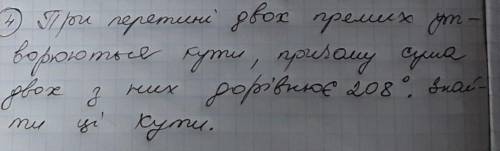 4) При перетині двох прямих ут-
ворюються кути, причому сума
двох з них дорівнює 208°. Знай-
ти ці кути.